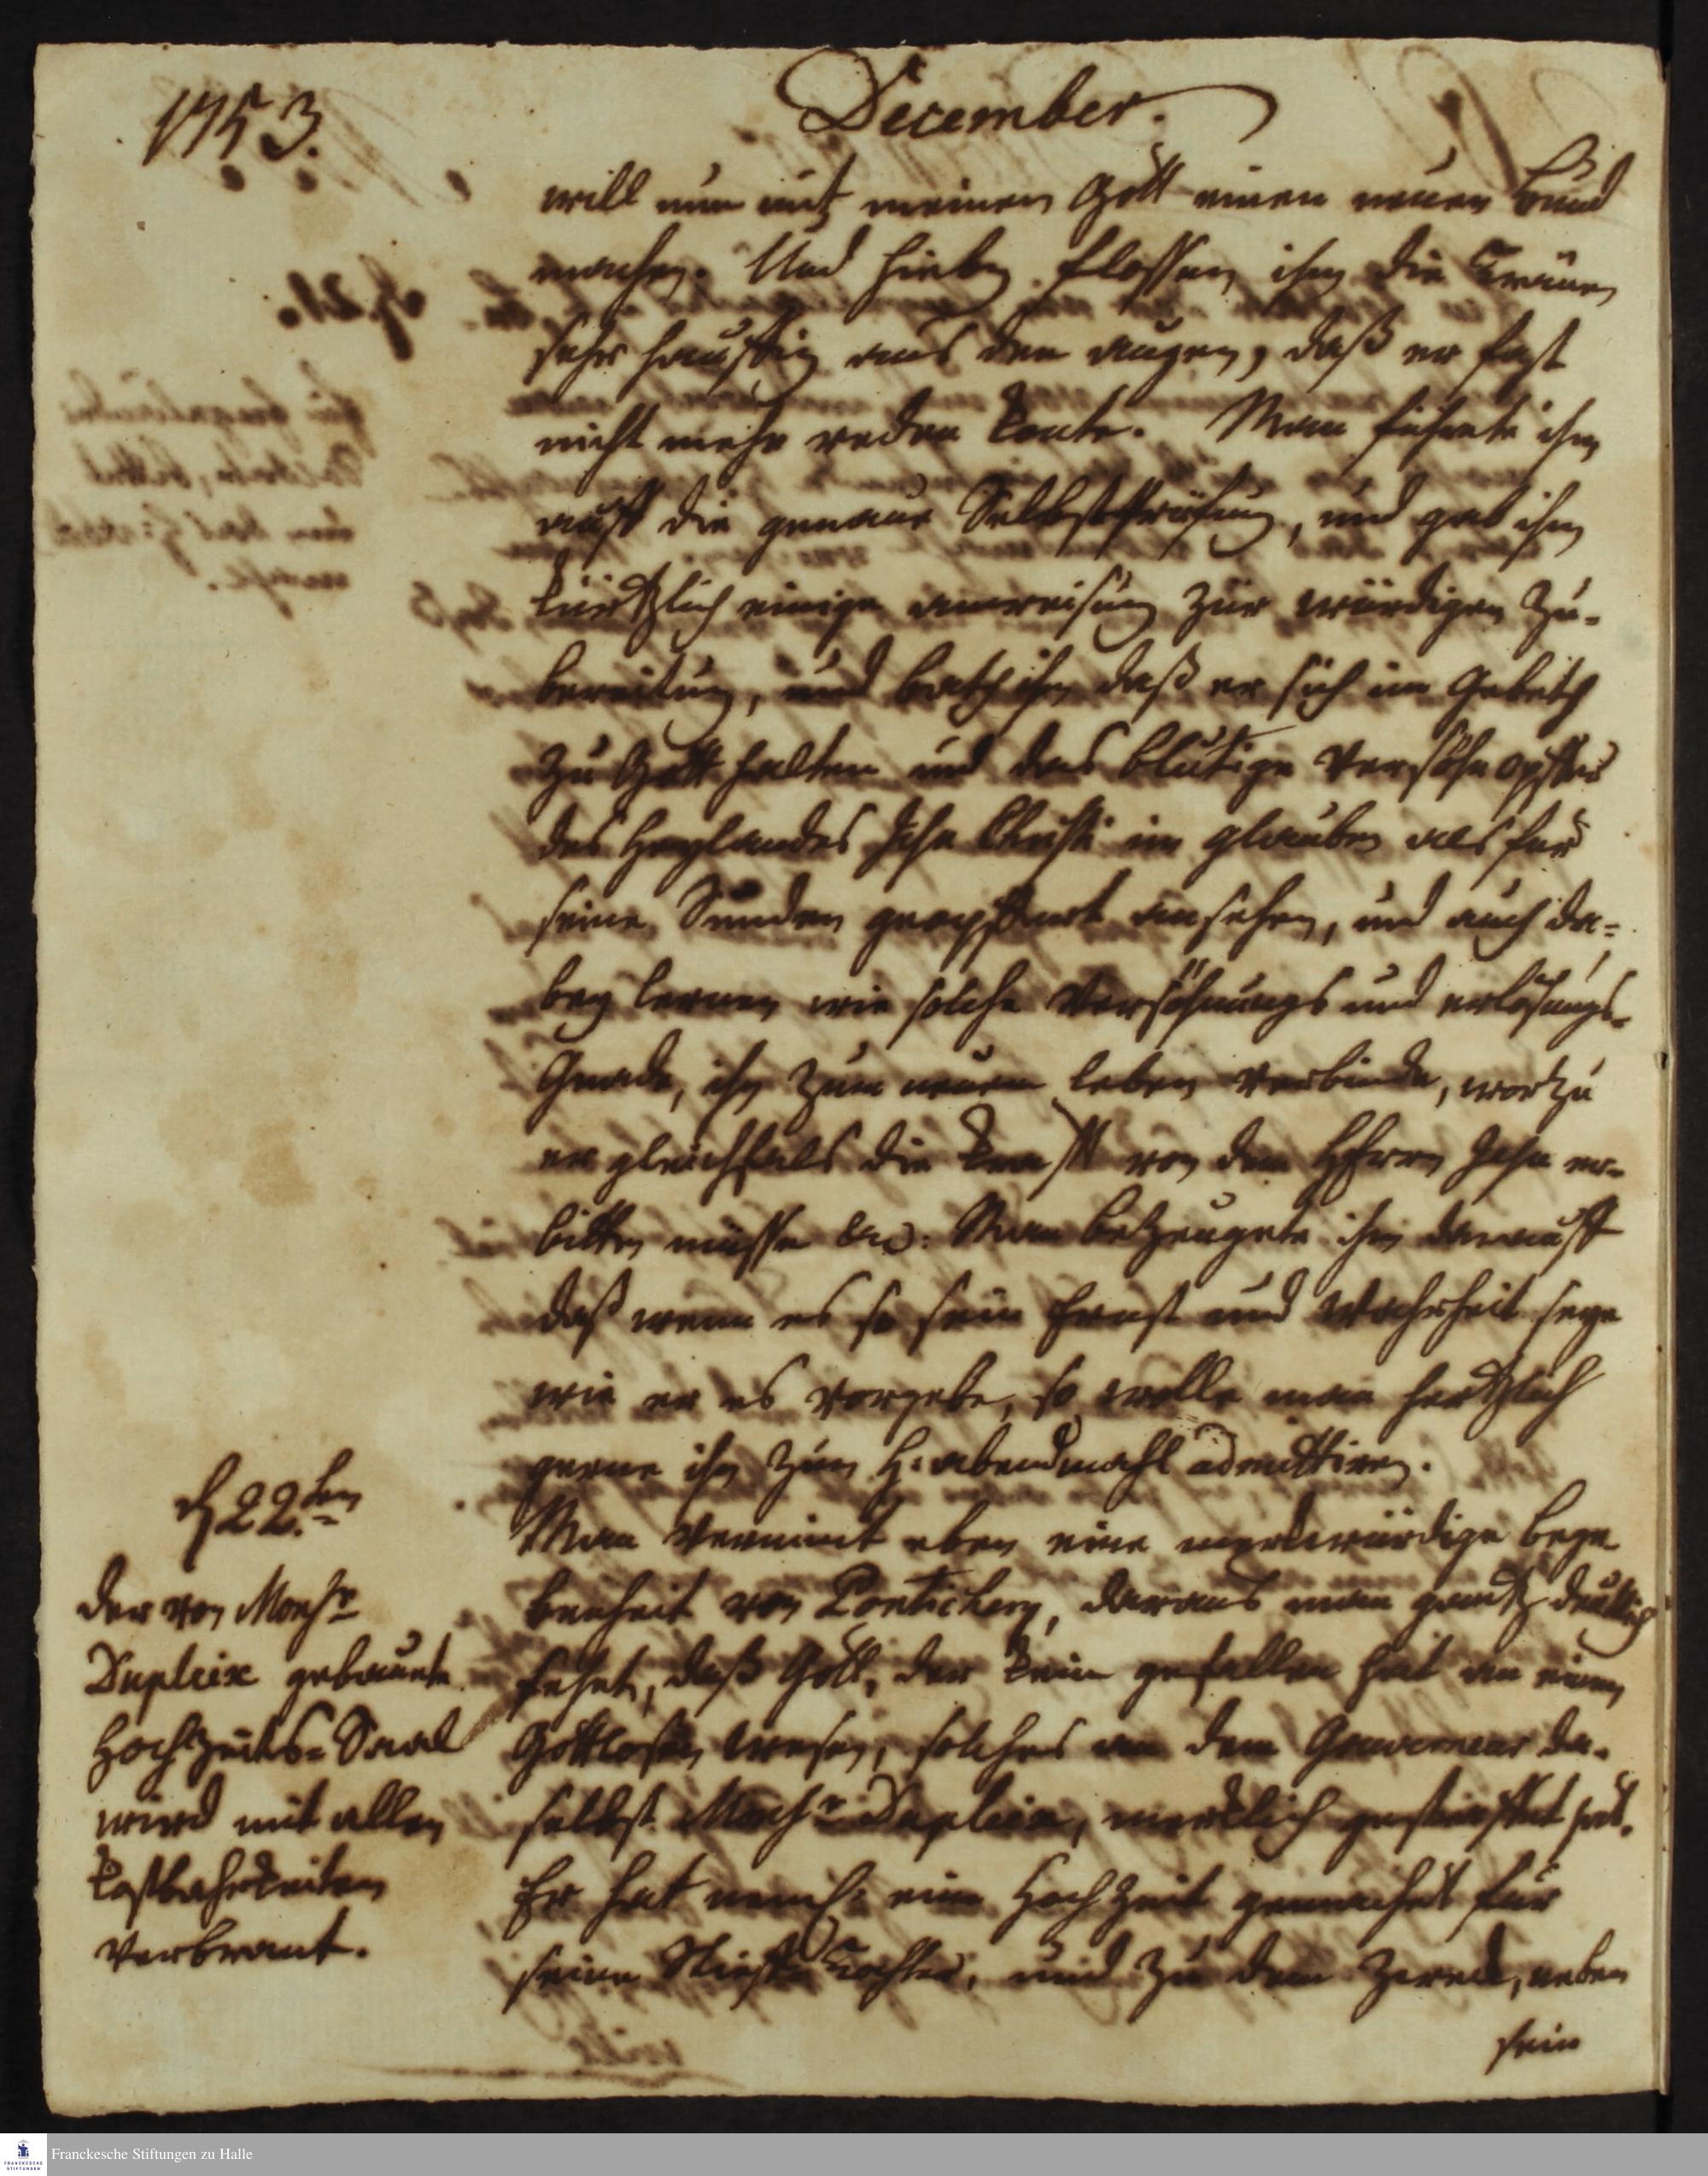 1753.
December.
will nun mit meinem Gott einen neuen Bund
machen. Und hirbey flossen ihm die Tränen
sehr häuffig aus den augen, daß er fast
nicht mehr reden konte. Man führete ihn
auff die genaue Selbstprüfung, und gab ihm
kürtzlich einige anweisung zur würdigen Zu-
bereitung, und bath ihn daß er sich im Gebeth
zu Gott halten und das blutige Versöhn opffer
des Heylandes Jesu Christi im glauben als für
seine Sünden geopffert ansehen, und auch da-
bey lernen wie solche Versöhnungs und erlösungs-
Gnade, ihn zum neuen leben verbinde, wortzu
er gleichfals die Krafft von dem HErrn Jesu er-
bitten müsse &c: Man betzeugete ihm darauff
daß wenn es so sein Ernst und Wahrheit seye
wie er es vorgebe, so wolle man hertzlich
gerne ihn zum H: abendmahl admittiren.
22.ten
der von Monsr
Dupleix gebauete
Hochzeits-Saal
wird mit allen
Kostbahrkeiten
verbrant.
Man vernimt eben eine merckwürdige bege
benheit von Pontichery, daraus man gantz deutlich
sehet, daß Gott, der kein gefallen hat an einem
Gottlosen wesen, solches an dem Gouverneur da-
selbst Monsr Dupleix, mercklich gestraffet hat.
Er hat neml: eine Hochzeit gemachet für
seine Stieff Tochter, und zu dem Zweck, neben
sein